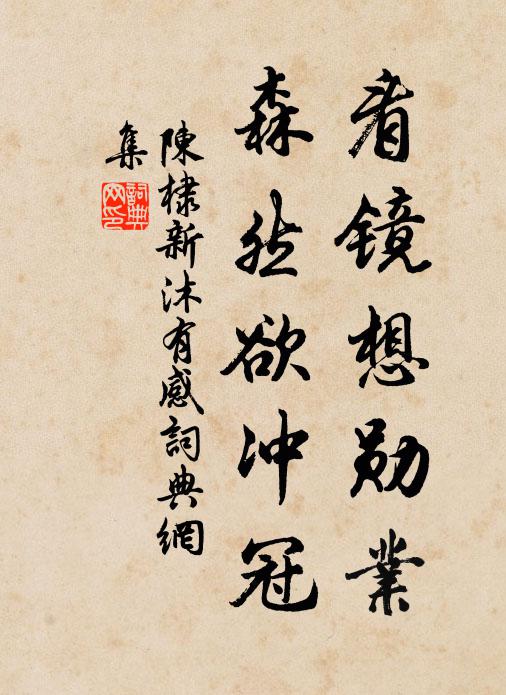 看镜想勋業
森然欲冲冠
陳棣新沐有感詞典網
集
詞典
网印